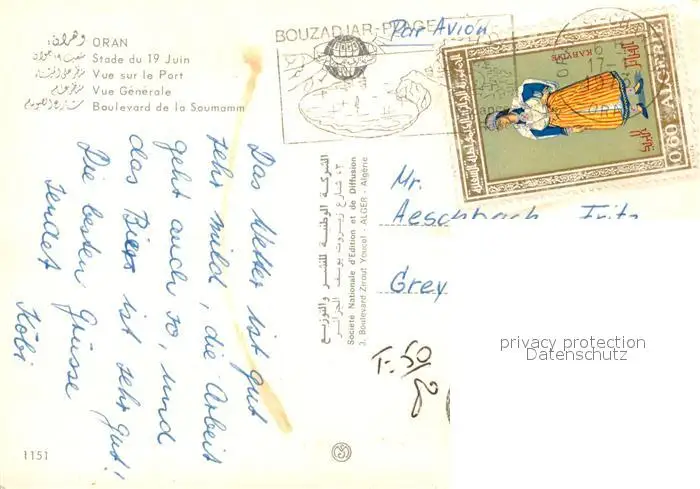 وهران ORAN
Stade du 19 Juin
Vue sur le Port
منظر عام Vue Générale
شارع الصومام Boulevard de la Soumamm
BOUZADJAR-PLAGE
Par Avion
KABYLIE
ALGERIE
0,60
Das Wetter ist gut
sehr mild, die Arbeit
geht auch so, und
das Bier ist sehr gut!
Die besten Grüsse
sendet
Köbi
الشركة الوطنية للنشر والتوزيع
٣ شارع زيروت يوسف الجزائر
Société Nationale d'Edition et de Diffusion
3, Boulevard Zirout Youcef - ALGER - Algérie
Mr.
Aeschbach Fritz
Grey
privacy protection
Datenschutz
T. 50
1151